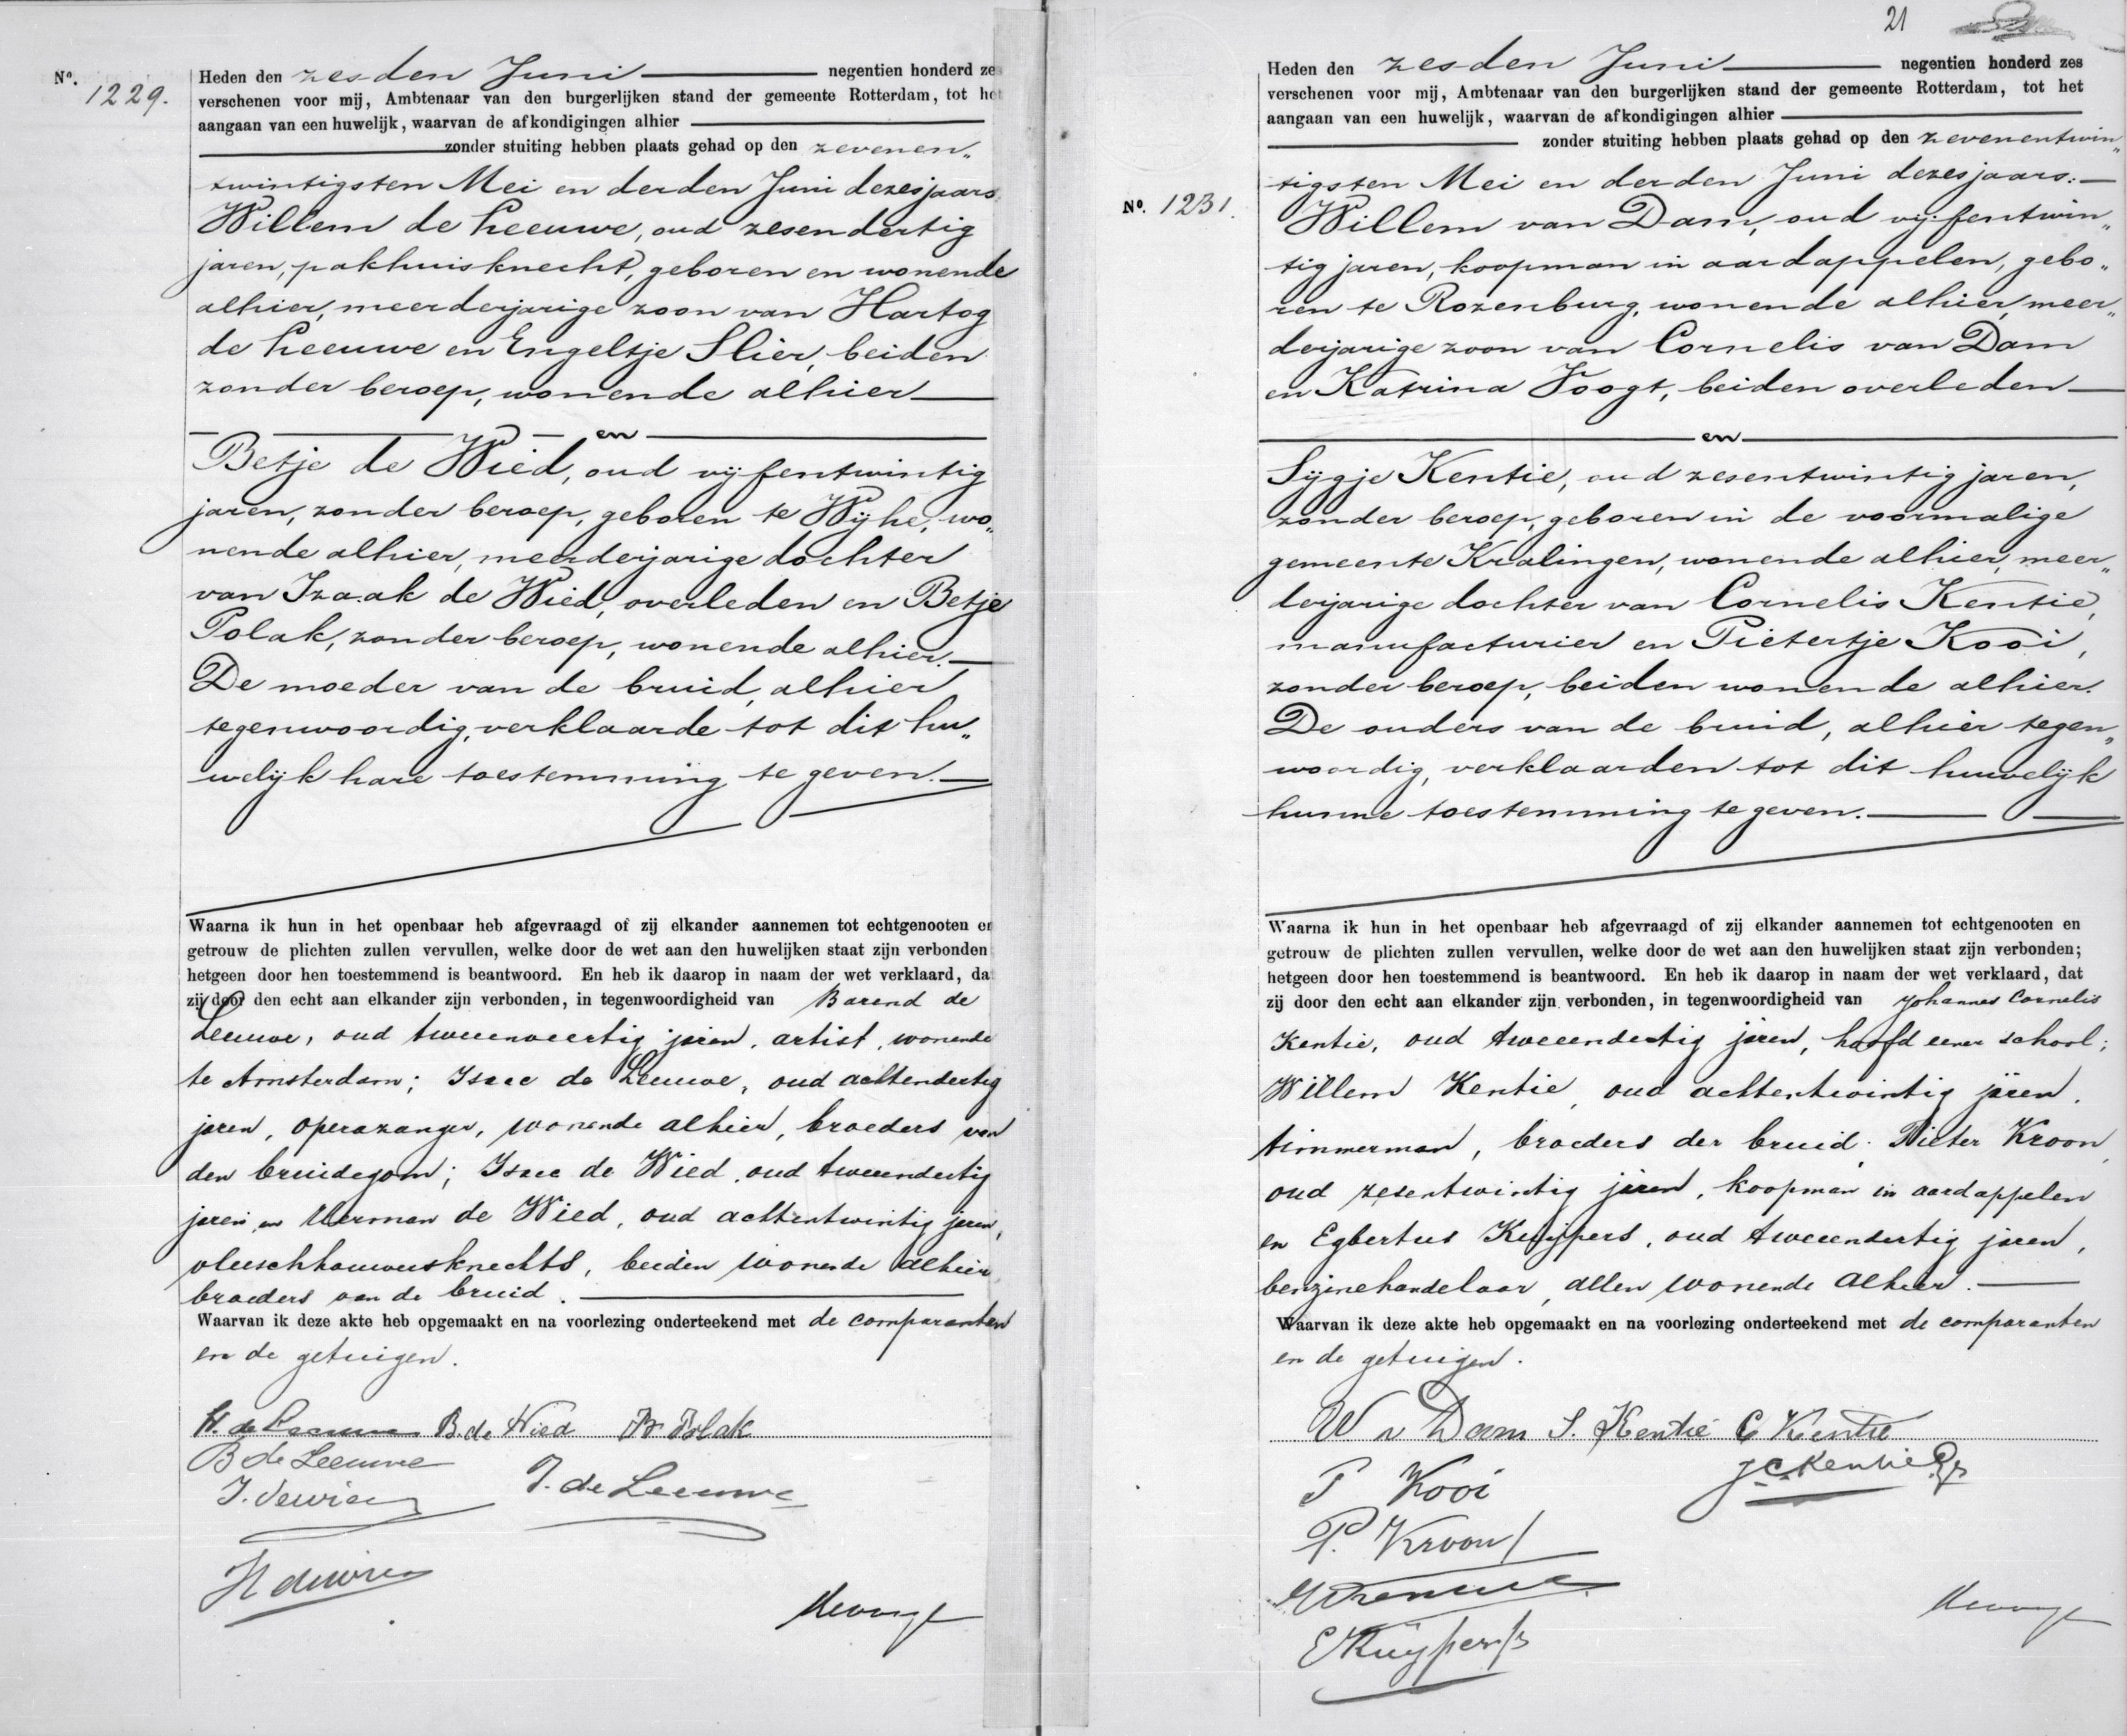 No. 1229.
Heden den zesden Juni negentien honderd zes
verschenen voor mij, Ambtenaar van den burgerlijken stand der gemeente Rotterdam, tot het
aangaan van een huwelijk, waarvan de afkondigingen alhier
zonder stuiting hebben plaats gehad op den zevenen„
twintigsten Mei en derden Juni dezes jaars.
Willem de Leeuwe, oud zesendertig
jaren, pakhuisknecht, geboren en wonende
alhier, meerderjarige zoon van Hartog
de Leeuwe en Engeltje Slier, beiden
zonder beroep, wonende alhier
en
Betje de Wied, oud vijfentwintig
jaren, zonder beroep, geboren te Wijhe, wo„
nende alhier, meerderjarige dochter
van Izaak de Wied, overleden en Betje
Polak, zonder beroep, wonende alhier.
De moeder van de bruid, alhier
tegenwoordig, verklaarde tot dit hu„
welijk hare toestemming te geven.
Waarna ik hun in het openbaar heb afgevraagd of zij elkander aannemen tot echtgenooten en
getrouw de plichten zullen vervullen, welke door de wet aan den huwelijken staat zijn verbonden
hetgeen door hen toestemmend is beantwoord. En heb ik daarop in naam der wet verklaard, da
zij door den echt aan elkander zijn verbonden, in tegenwoordigheid van Barend de
Leeuwe, oud tweeenveertig jaren, artist, wonende
te Amsterdam; Isaac de Leeuwe, oud achtendertig
jaren, operazanger, wonende alhier, broeders van
den bruidegom; Isaac de Wied, oud tweeendertig
jaren en Herman de Wied, oud achtentwintig jaren,
vleeschhouwersknechts, beiden wonende alhier
broeders van de bruid.
Waarvan ik deze akte heb opgemaakt en na voorlezing onderteekend met de comparanten
en de getuigen.
W. de Leeuwe B. de Wied B. Polak
B de Leeuwe
I. de Wied I. de Leeuwe
H de Wied
21
Heden den zesden Juni negentien honderd zes
verschenen voor mij, Ambtenaar van den burgerlijken stand der gemeente Rotterdam, tot het
aangaan van een huwelijk, waarvan de afkondigingen alhier
zonder stuiting hebben plaats gehad op den zevenentwin„
tigsten Mei en derden Juni dezes jaars.
No. 1231.
Willem van Dam, oud vijfentwin„
tig jaren, koopman in aardappelen, gebo„
ren te Rozenburg, wonende alhier, meer„
derjarige zoon van Cornelis van Dam
en Katrina Voogt, beiden overleden
en
Sijgje Kentie, oud zesentwintig jaren,
zonder beroep, geboren in de voormalige
gemeente Kralingen, wonende alhier, meer„
derjarige dochter van Cornelis Kentie,
manufacturier en Pietertje Kooi,
zonder beroep, beiden wonende alhier.
De ouders van de bruid, alhier tegen„
woordig, verklaarden tot dit huwelijk
hunne toestemming te geven.
Waarna ik hun in het openbaar heb afgevraagd of zij elkander aannemen tot echtgenooten en
getrouw de plichten zullen vervullen, welke door de wet aan den huwelijken staat zijn verbonden;
hetgeen door hen toestemmend is beantwoord. En heb ik daarop in naam der wet verklaard, dat
zij door den echt aan elkander zijn verbonden, in tegenwoordigheid van Johannes Cornelis
Kentie, oud tweeendertig jaren, hoofd eener school;
Willem Kentie, oud achtentwintig jaren,
timmerman, broeders der bruid. Pieter Kroon,
oud zesentwintig jaren, koopman in aardappelen
en Egbertus Kuijpers, oud tweeendertig jaren,
benzinehandelaar, allen wonende alhier.
Waarvan ik deze akte heb opgemaakt en na voorlezing onderteekend met de comparanten
en de getuigen.
W v Dam S. Kentie C Kentie
P Kooi JC Kentie
P. Kroon
E Kuijpers